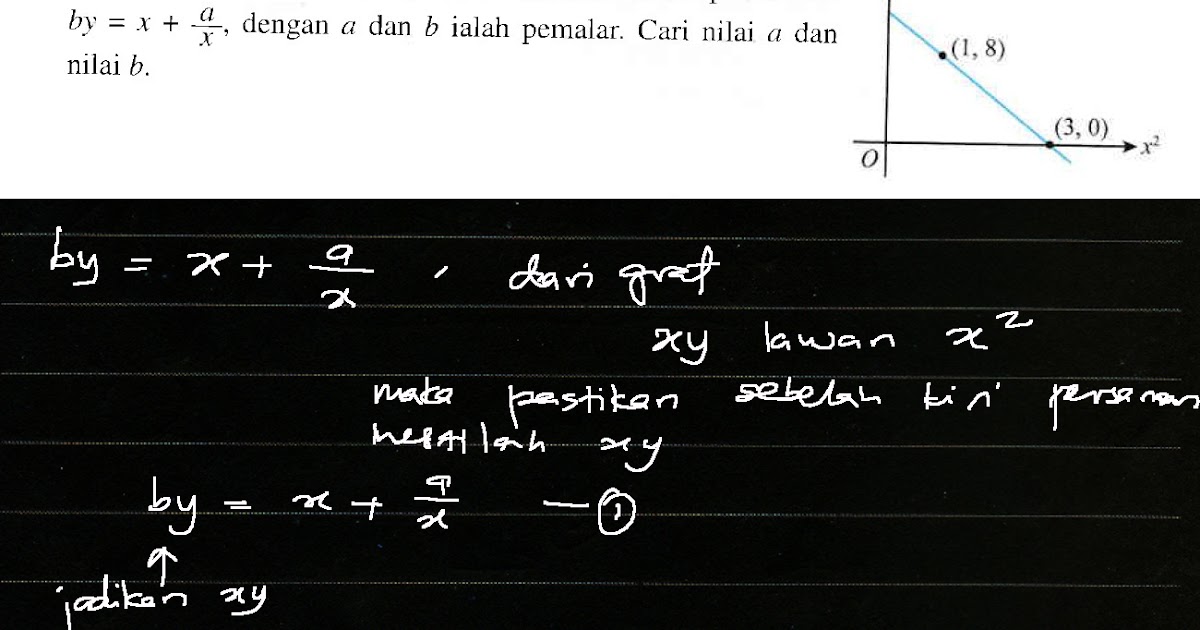 by = x + a/x, dengan a dan b ialah pemalar. Cari nilai a dan
nilai b.
(1, 8)
(3, 0)
O
x²
by = x + a/x , dari graf
xy lawan x²
maka pastikan sebelah kiri persamaan
xy
by = x + a/x — ①
↑
jadikan xy